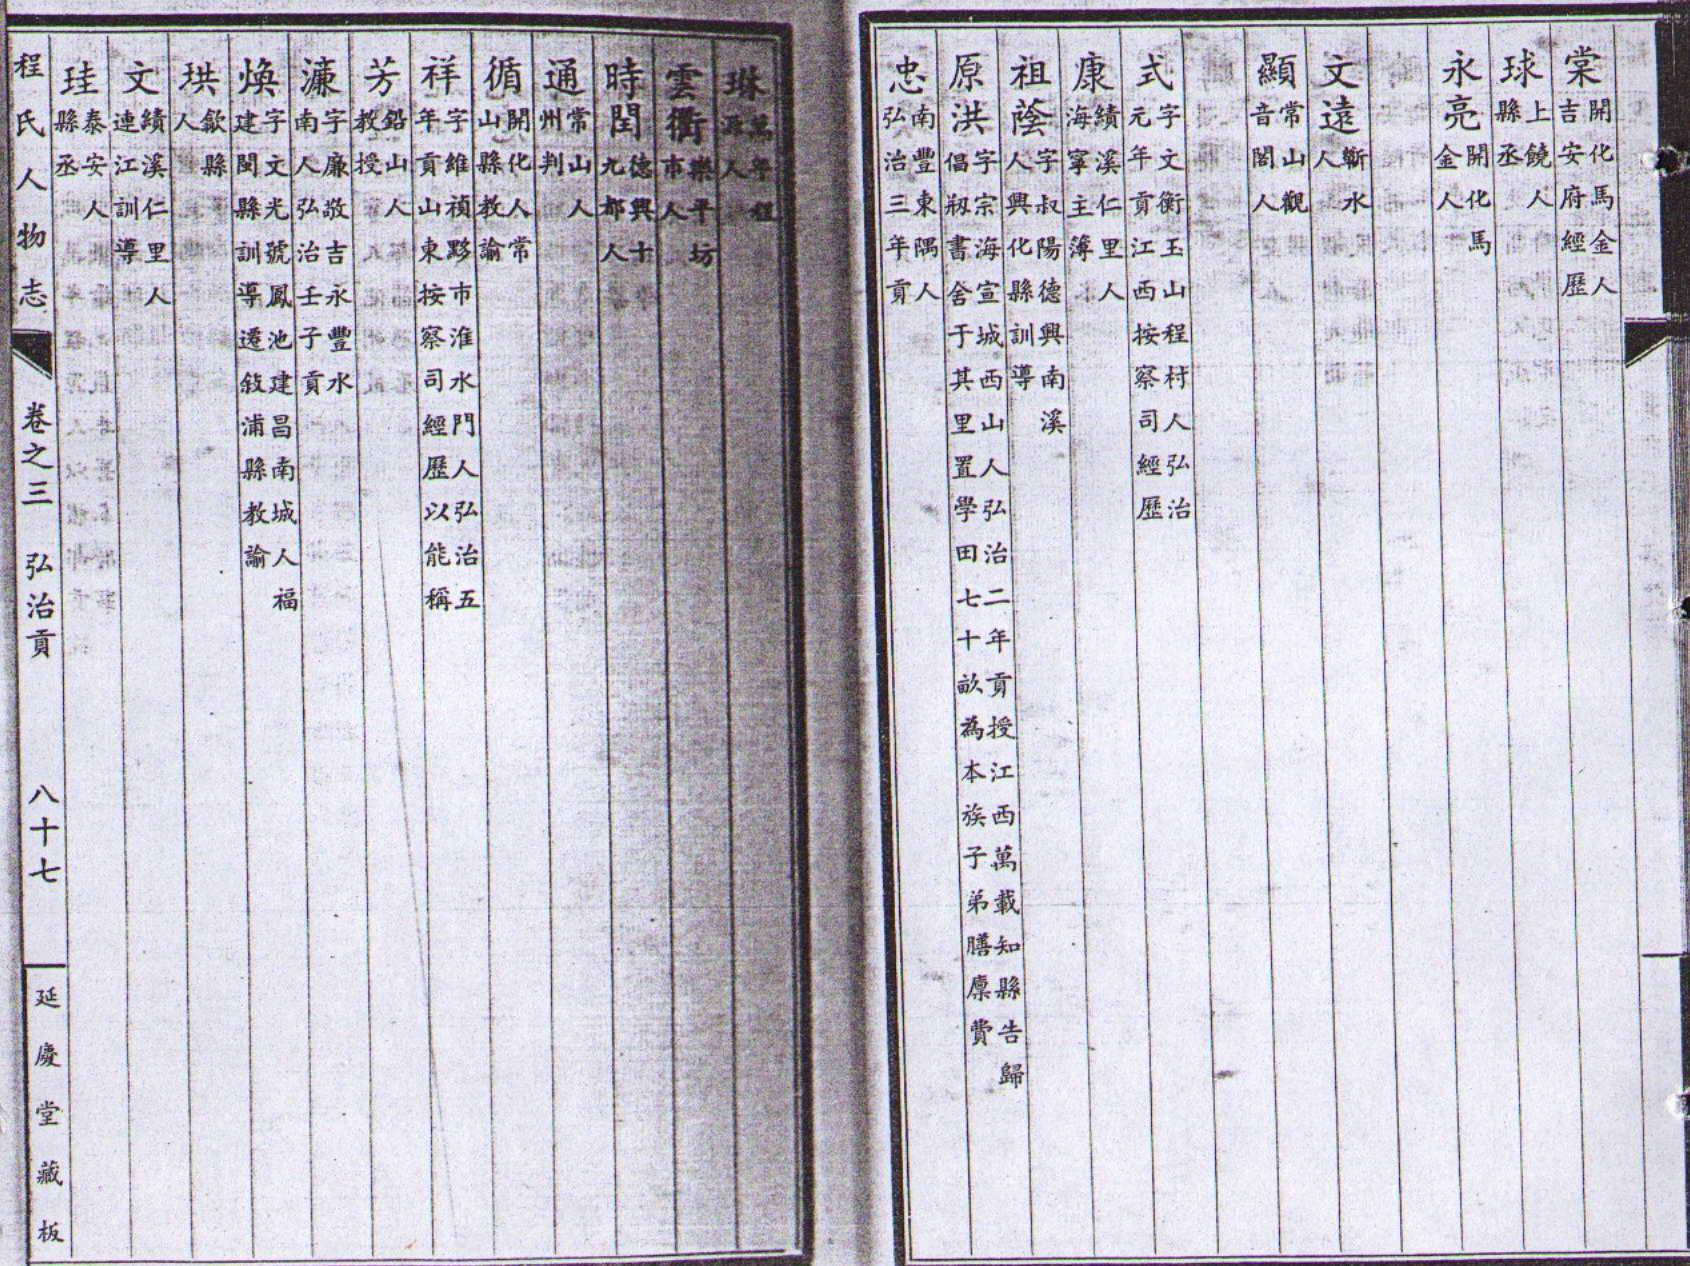 棠 開化馬金人吉安府經歷
球 上饒人縣丞
永亮 開化馬金人
文遠 蘄水人
顯 常山觀音閣人
式 字文衡玉山程村人弘治元年貢江西按察司經歷
康 績溪仁里人海寧主簿
祖蔭 字叔陽德興南溪人興化縣訓導
原洪 字宗海宣城西山人弘治二年貢授江西萬載知縣告歸倡剏書舍于其里置學田七十畝為本族子弟膳廩費
忠 南豐東隅人弘治三年貢
琳 人
雲衢 樂平坊市人
時閏 德興十九都人
通 常山人州判
循 開化人常山縣教諭
祥 字維禎黟市淮水門人弘治五年貢山東按察司經歷以能稱
芳 鉛山人教授
濂 字廉敬吉永豐水南人弘治壬子貢
煥 字文光號鳳池建昌南城人福建閩縣訓導遷敘浦縣教諭
珙 歙縣人
文 績溪仁里人連江訓導
珪 泰安人縣丞
程氏人物志 卷之三 弘治貢 八十七 延慶堂藏板